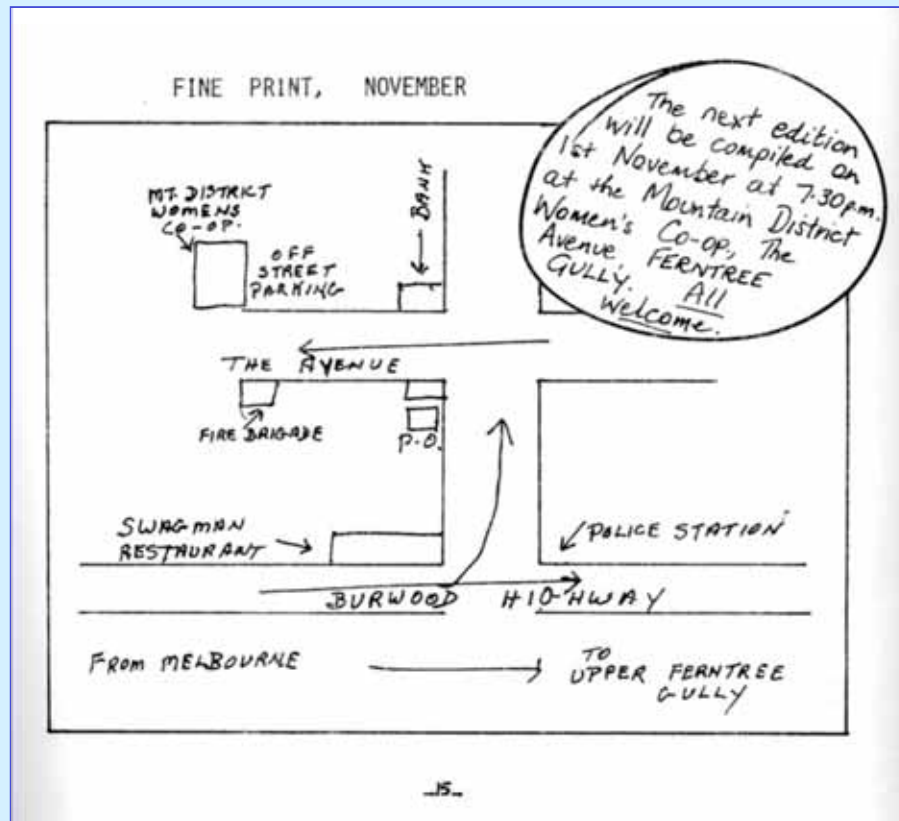 FINE PRINT, NOVEMBER
The next edition
will be compiled on
1st November at 7.30p.m.
at the Mountain District
Women's Co-op, The
Avenue, FERNTREE
GULLY. All
Welcome.
MT. DISTRICT
WOMENS
CO-OP.
OFF
STREET
PARKING
BANK
THE AVENUE
FIRE BRIGADE
P.O.
SWAGMAN
RESTAURANT
POLICE STATION
BURWOOD HIGHWAY
FROM MELBOURNE
TO
UPPER FERNTREE
GULLY
-15-